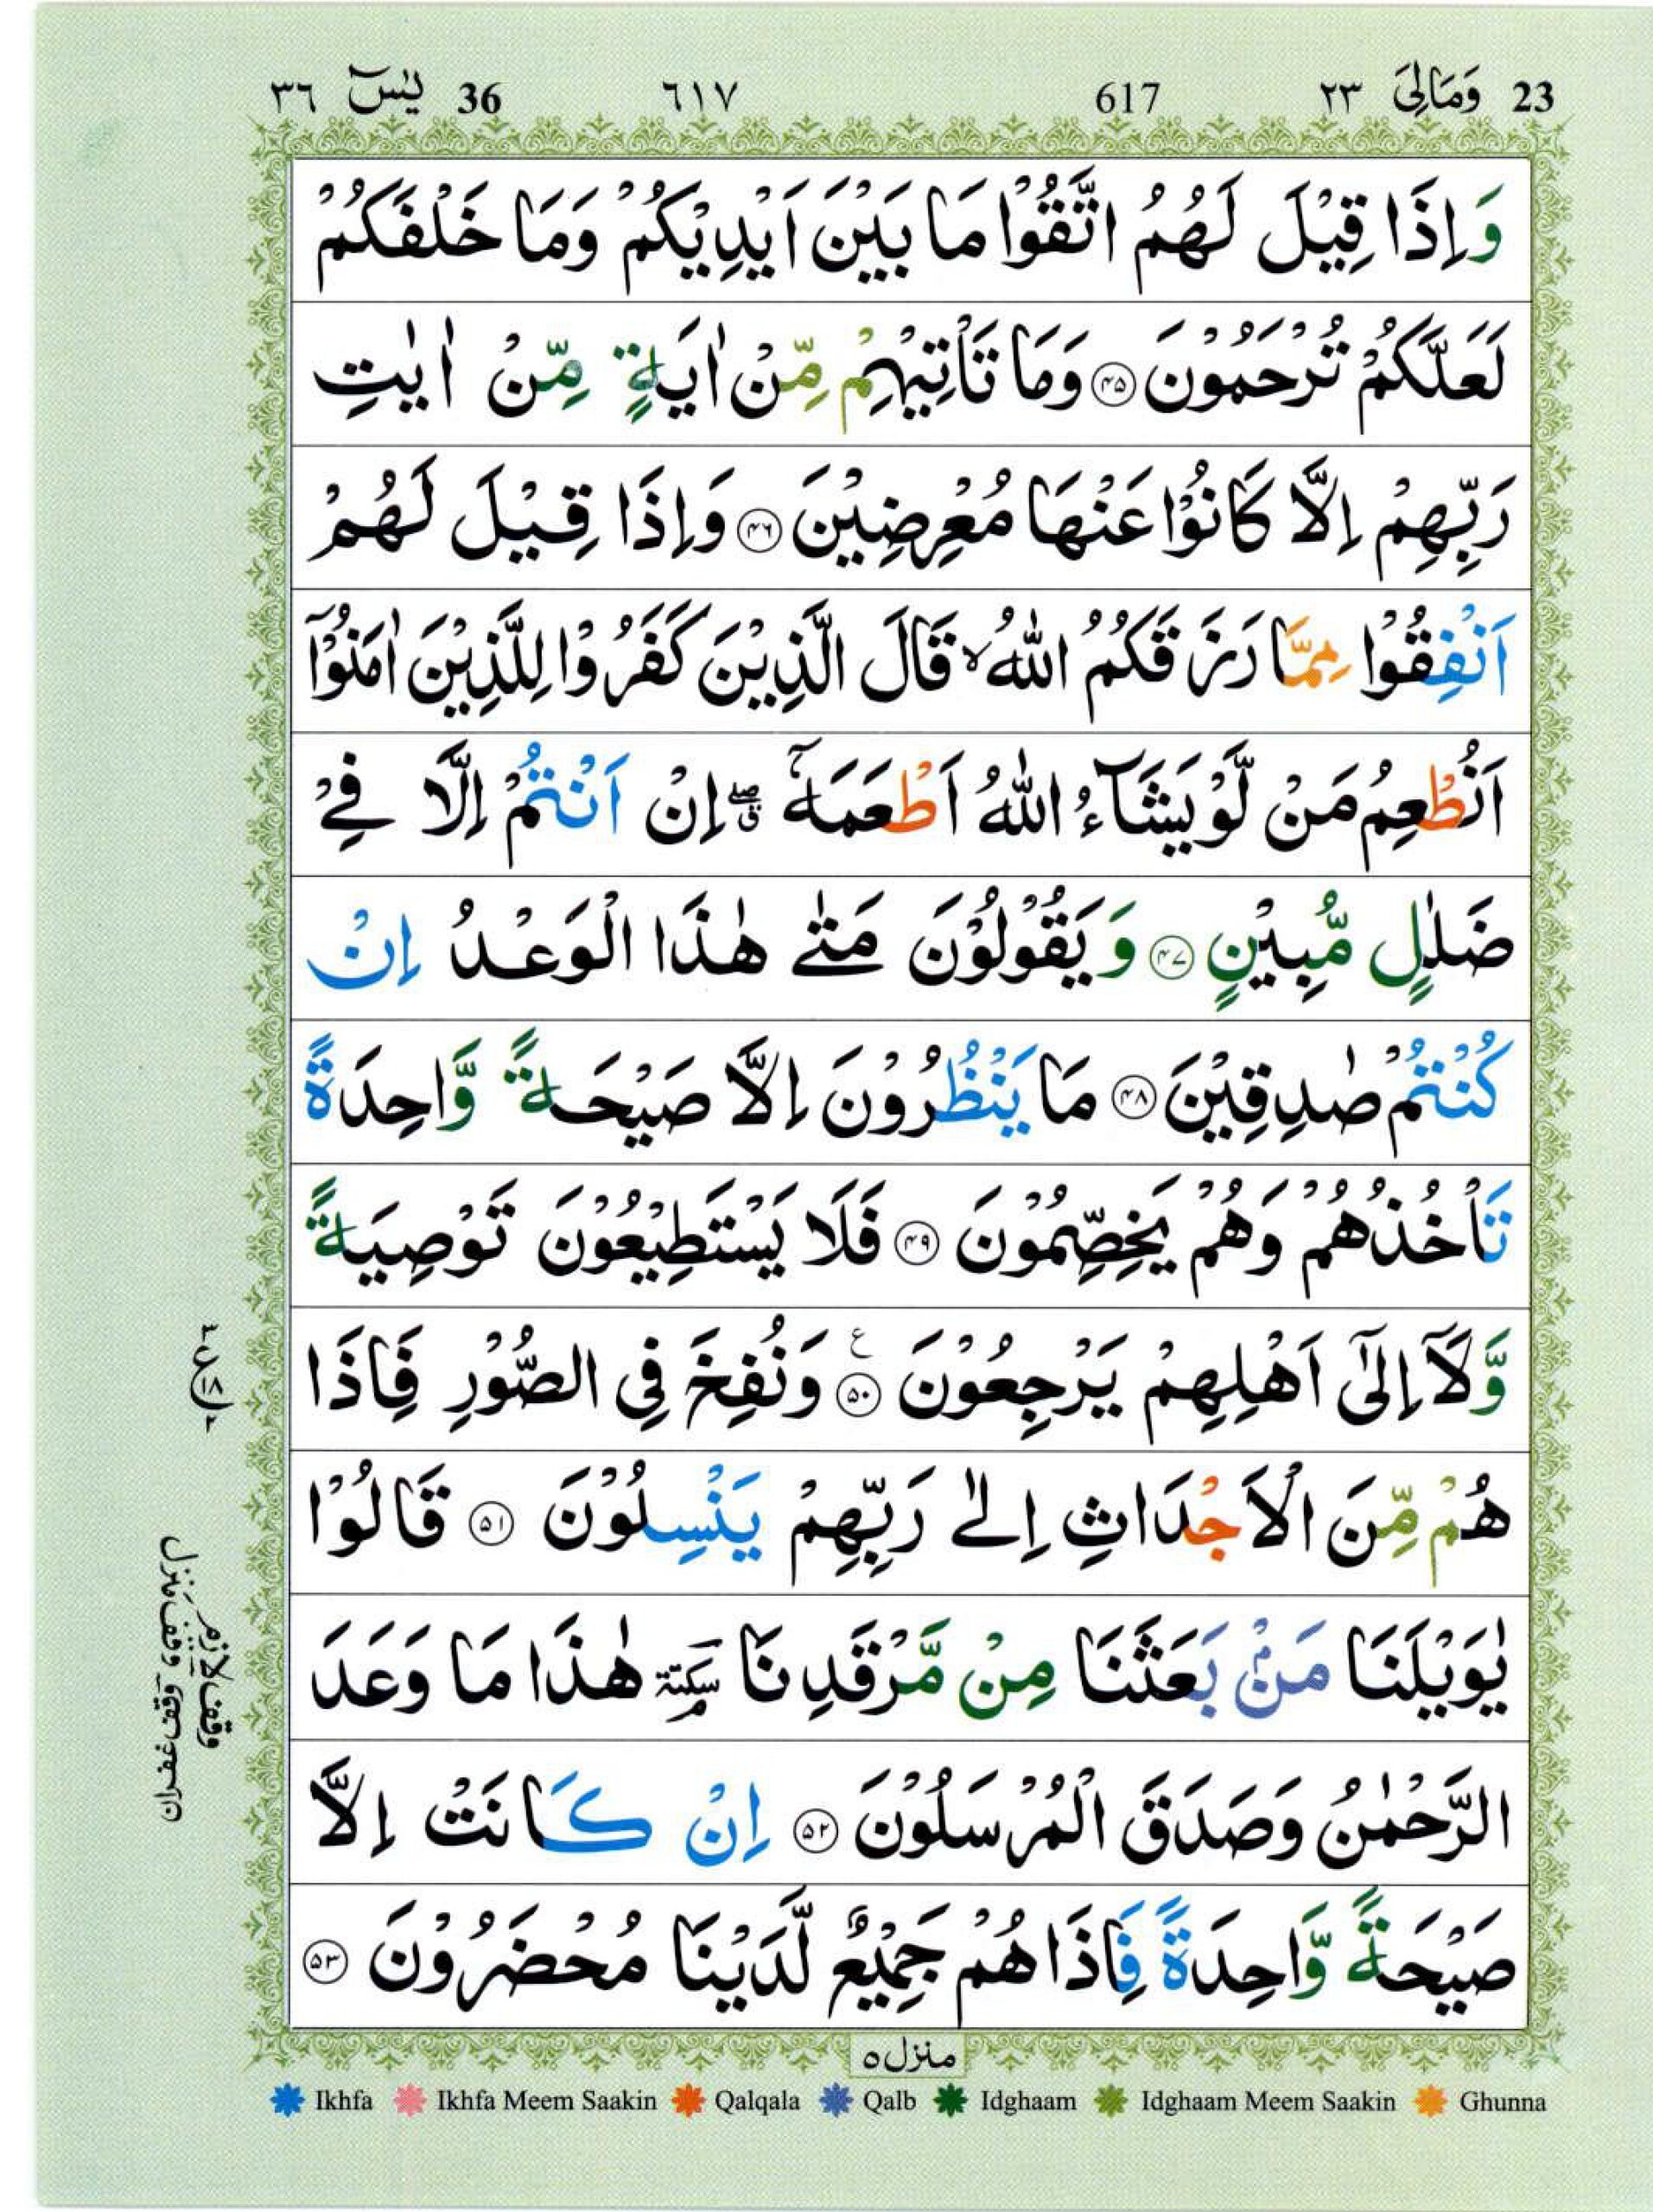 36 يٰسٓ ٣٦ ٦١٧ 617 23 وَمَالِیَ ٢٣
وَاِذَا قِيْلَ لَهُمُ اتَّقُوْا مَا بَيْنَ اَيْدِيْكُمْ وَمَا خَلْفَكُمْ
لَعَلَّكُمْ تُرْحَمُوْنَ ﴿۴۵﴾ وَمَا تَاْتِيْهِمْ مِّنْ اٰيَةٍ مِّنْ اٰيٰتِ
رَبِّهِمْ اِلَّا كَانُوْا عَنْهَا مُعْرِضِيْنَ ﴿۴۶﴾ وَاِذَا قِيْلَ لَهُمْ
اَنْفِقُوْا مِمَّا رَزَقَكُمُ اللّٰهُ ۙ قَالَ الَّذِيْنَ كَفَرُوْا لِلَّذِيْنَ اٰمَنُوْۤا
اَنُطْعِمُ مَنْ لَّوْ يَشَآءُ اللّٰهُ اَطْعَمَهٗۤ ۖق اِنْ اَنْتُمْ اِلَّا فِيْ
ضَلٰلٍ مُّبِيْنٍ ﴿۴۷﴾ وَيَقُوْلُوْنَ مَتٰى هٰذَا الْوَعْدُ اِنْ
كُنْتُمْ صٰدِقِيْنَ ﴿۴۸﴾ مَا يَنْظُرُوْنَ اِلَّا صَيْحَةً وَّاحِدَةً
تَاْخُذُهُمْ وَهُمْ يَخِصِّمُوْنَ ﴿۴۹﴾ فَلَا يَسْتَطِيْعُوْنَ تَوْصِيَةً
وَّلَاۤ اِلٰٓى اَهْلِهِمْ يَرْجِعُوْنَ ﴿۵۰﴾ ع وَنُفِخَ فِي الصُّوْرِ فَاِذَا
هُمْ مِّنَ الْاَجْدَاثِ اِلٰى رَبِّهِمْ يَنْسِلُوْنَ ﴿۵۱﴾ قَالُوْا
يٰوَيْلَنَا مَنْۢ بَعَثَنَا مِنْ مَّرْقَدِنَا سكتة هٰذَا مَا وَعَدَ
الرَّحْمٰنُ وَصَدَقَ الْمُرْسَلُوْنَ ﴿۵۲﴾ اِنْ كَانَتْ اِلَّا
صَيْحَةً وَّاحِدَةً فَاِذَا هُمْ جَمِيْعٌ لَّدَيْنَا مُحْضَرُوْنَ ﴿۵۳﴾
وقف لازم
وقف منزل وقف غفران
منزل ۵
Ikhfa Ikhfa Meem Saakin Qalqala Qalb Idghaam Idghaam Meem Saakin Ghunna